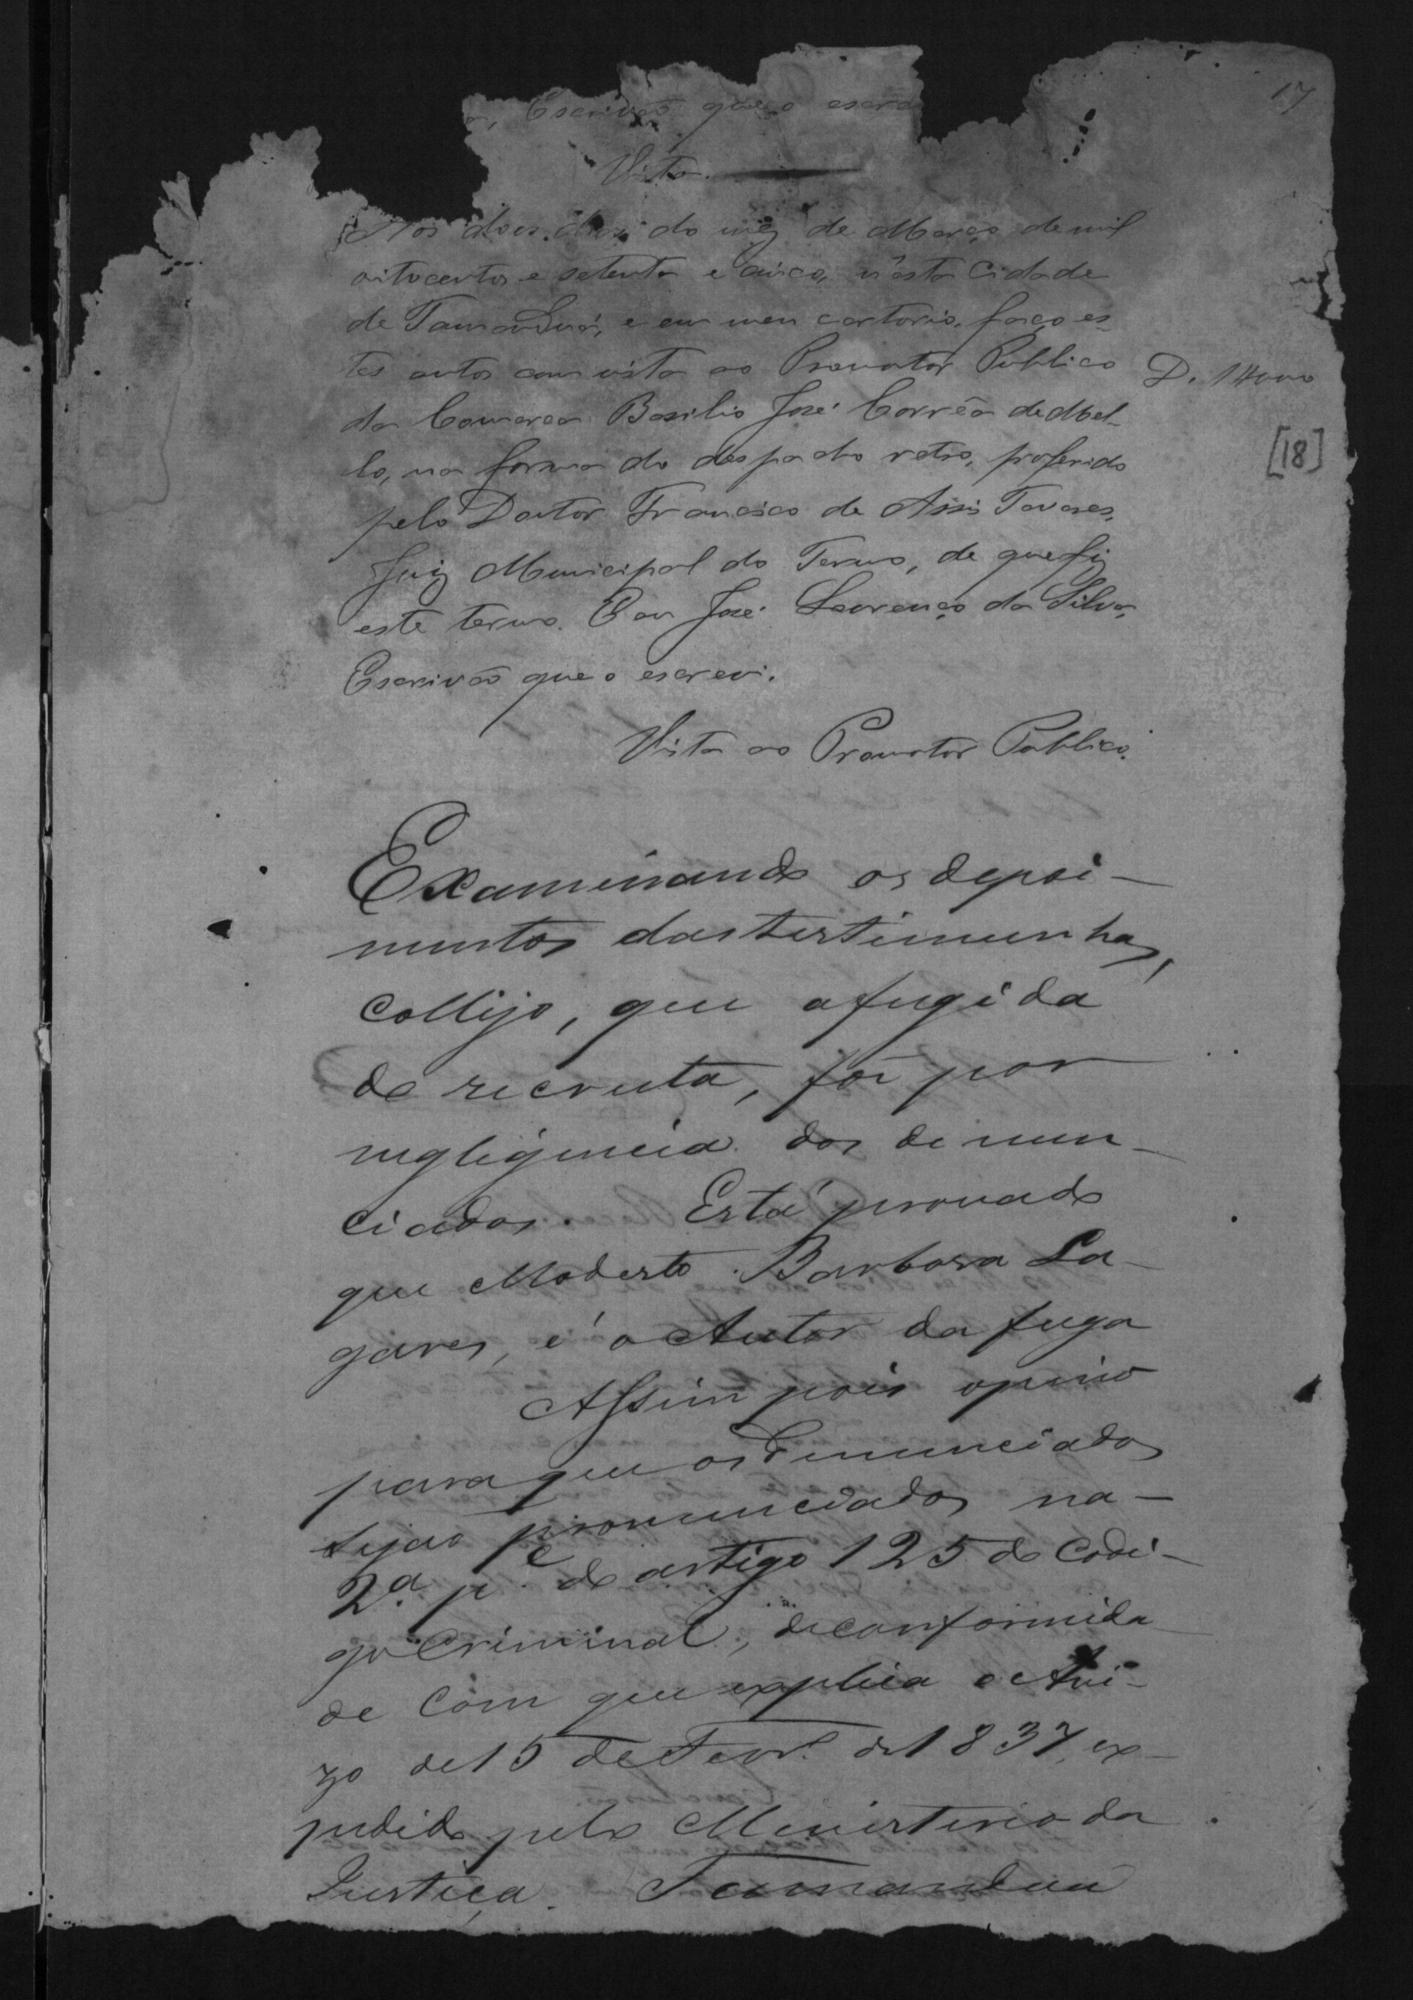 17
Escrivão que o escre
Vista
Aos dous dias do mez de Março de mil
oitocentos e setenta e cinco, n'esta Cidade
de Tamanduá, e em meu cartorio, faço es-
tes autos com vista ao Promotor Publico
da Comarca Basilio José Corrêa de Mel-
lo, na forma do despacho retro, proferido
pelo Doutor Francisco de Assis Tavares,
Juiz Municipal do Termo, de que fiz
este termo. Eou José Lourenço da Silva,
Escrivão que o escrevi.
D. 1
[18]
Vista ao Promotor Publico.
Examinando os depoi-
mentos das testimunhas,
collijo, que a fugida
do recruta, foi por
negligencia dos denun-
ciados. Está provado
que Modesto Barbosa La-
gares, é o Autor da fuga
Assim pois opino
para que os denunciados
sejão pronunciados na
2.ª p.e do artigo 125 do Codi-
go Criminal, de conformida-
de com que explica o Avi-
zo de 15 de Fevr.º de 1837, ex-
pedido pelo Ministerio da
Justiça. Tamanduá